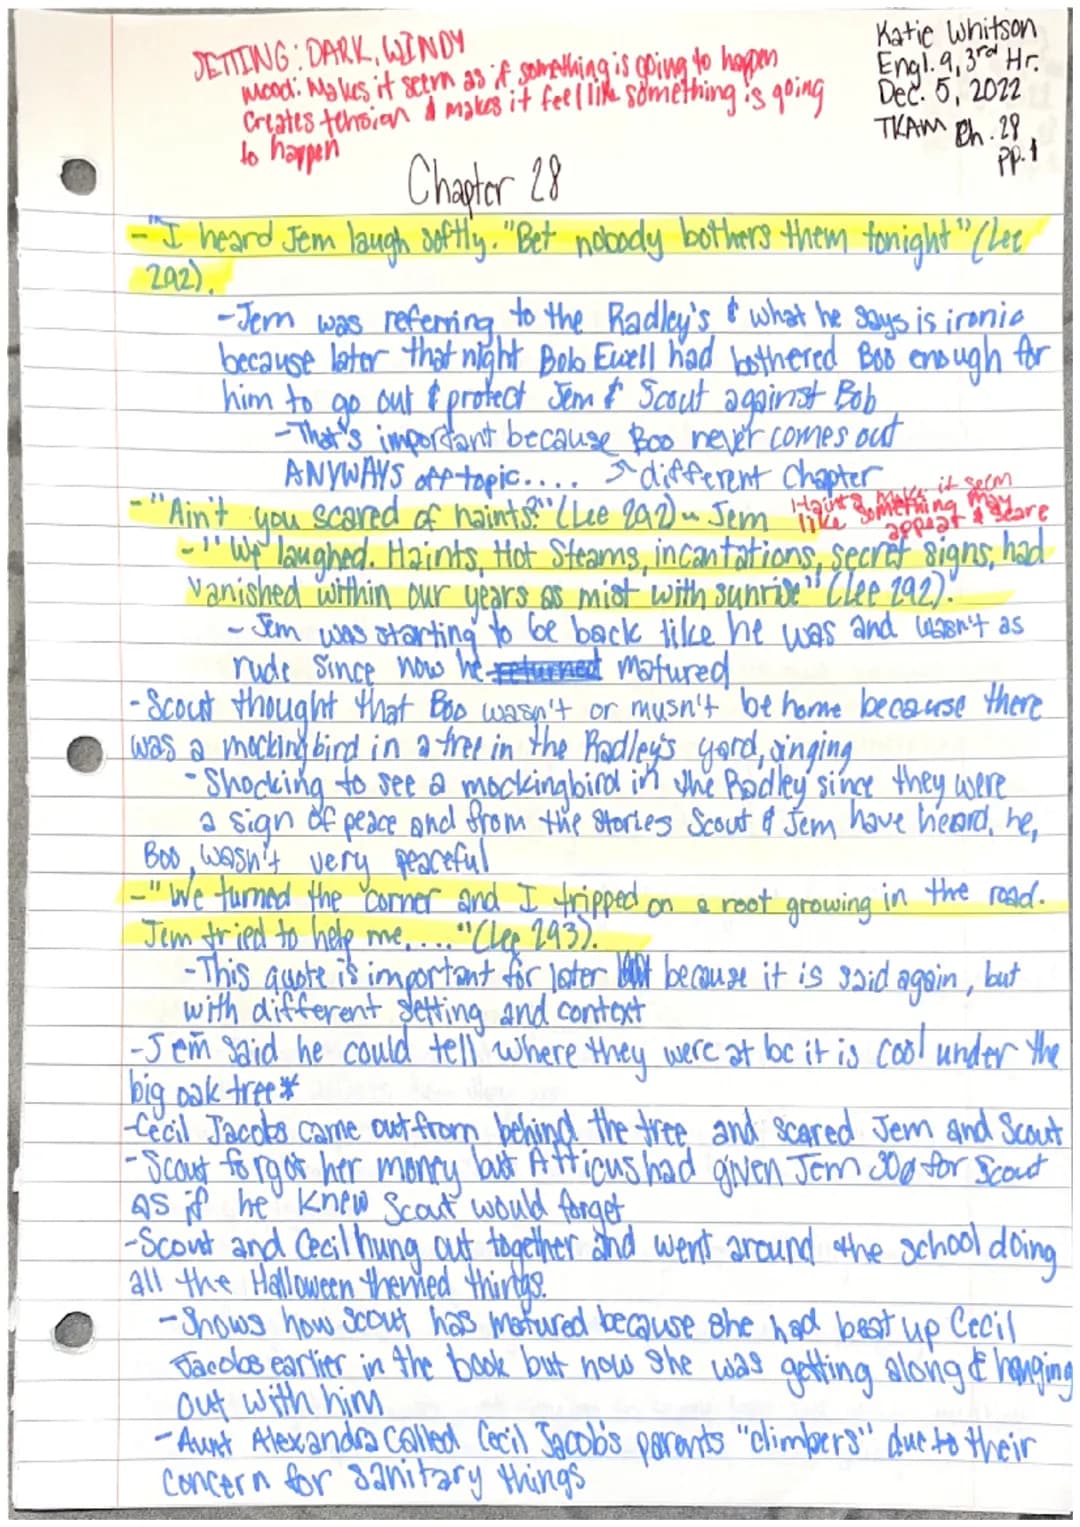 SETTING: DARK, WINDY
Mood: Makes it seem as if something is going to happen
Creates tension & makes it feel like something is going
to happen
Katie Whitson
Engl. 9, 3rd Hr.
Dec. 5, 2022
TKAM Ch. 28
pp. 1
Chapter 28
- "I heard Jem laugh softly. "Bet nobody bothers them tonight" (Lee
292).
- Jem was referring to the Radley's & what he says is ironic
because later that night Bob Ewell had bothered Boo enough for
him to go out & protect Jem & Scout against Bob
- That's important because Boo never comes out
ANYWAYS off topic.... different Chapter
- "Ain't you scared of haints?" (Lee 292) - Jem
Haints make it seem
like something may
appear & scare
- "We laughed. Haints, Hot Steams, incantations, secret signs, had
vanished within our years as mist with sunrise" (Lee 292).
- Jem was starting to be back like he was and wasn't as
rude since now he returned matured
- Scout thought that Boo wasn't or musn't be home because there
was a mockingbird in a tree in the Radley's yard, singing
- Shocking to see a mockingbird in the Radley since they were
a sign of peace and from the stories Scout & Jem have heard, he,
Boo, wasn't very peaceful
- "We turned the corner and I tripped on a root growing in the road.
Jem tried to help me...." (Lee 293).
- This quote is important for later because it is said again, but
with different setting and context
- Jem said he could tell where they were at bc it is cool under the
big oak tree*
- Cecil Jacobs came out from behind the tree and scared Jem and Scout
- Scout forgot her money but Atticus had given Jem 30¢ for Scout
as if he knew Scout would forget
- Scout and Cecil hung out together and went around the school doing
all the Halloween themed things.
- Shows how Scout has matured because she had beat up Cecil
Jacobs earlier in the book but now she was getting along & hanging
out with him
- Aunt Alexandra called Cecil Jacobs parents "climbers" due to their
concern for sanitary things